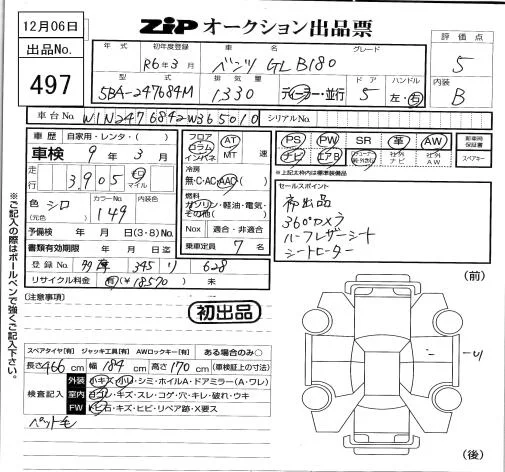 12月06日
出品No.
497
ZIP オークション出品票
評価点
5
内装
B
年式 初年度登録 車名 グレード
R6年3月 ベンツ GLB180
型式 排気量 ドア ハンドル
5BA-247684M 1330 ディーラー・並行 5 左・右
車台No. W1N2476842W365010 シリアルNo.
車歴 自家用・レンタ・( )
車検 9年 3月
走行 3,905 キロ マイル
色 シロ カラーNo. 149 内装色
(元色)
予備検 年 月 日(3・8)No.
書類有効期限 年 月 日迄
登録No. 多摩 345 り 628
リサイクル料金 有(¥18570) 未
フロア コラム インパネ AT MT 速
冷房
無・C・AC・AAC
燃料
ガソリン・軽油・電気・その他( )
Nox 適合・非適合
乗車定員 7 名
PS PW SR 革 AW
ナビ エアB 社外ナビ 社外AW
新車時保証書
スペアキー
※上記太枠内は標準装備品
セールスポイント
初出品
360°カメラ
ハーフレザーシート
シートヒーター
(注意事項)
初出品
スペアタイヤ[有] ジャッキ工具[有] AWロックキー[有] ある場合のみ○
長さ466cm 幅184cm 高さ170cm (車検証上の寸法)
検査記入
外装 小キズ・小凹・シミ・ホイルA・ドアミラー(A・ワレ)
室内 ヨゴレ・キズ・スレ・コゲ・穴・キレ・破れ・ウキ
FW トビ石・キズ・ヒビ・リペア跡・X要ス
ペット毛
(前)
(後)
※ご記入の際はボールペンで強くご記入下さい。